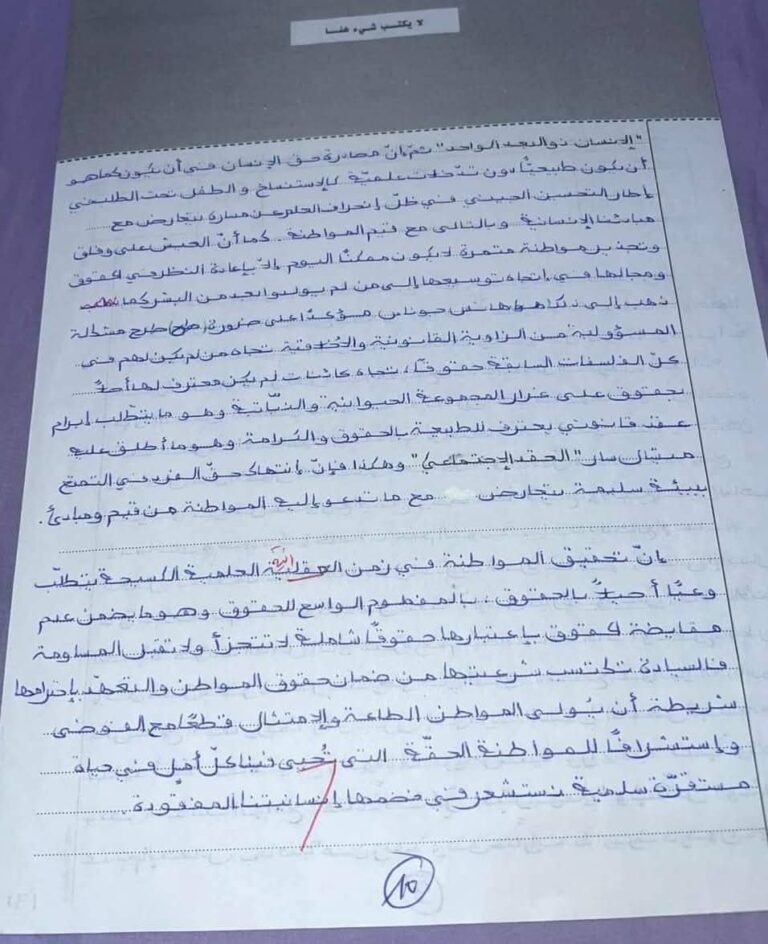 لا يكتب شيء هنا
"الإنسان ذو البعد الواحد" ثم إنّ مصادرة حق الإنسان في أن يكون كما هو
أن يكون طبيعيًّا دون تدخلات علميّة كالإستنساخ والطفل تحت الطلب في
إطار التحسين الجيني في ظلّ إنحراف العلم عن مساره يتعارض مع
مبادئنا الإنسانية وبالتالي مع قيم المواطنة. كما أنّ العيش على وفاق
وتجذير مواطنة مثمرة لا يكون ممكنًا اليوم إلاّ بإعادة النظر في الحقوق
ومجالها في إتجاه توسيعها إلى من لم يولدوا بعد من البشر كما
ذهب إلى ذلك هانس جوناس مؤكّدًا على ضرورة طرح مشكلة
المسؤولية من الزاوية القانونية والأخلاقية تجاه من لم يكن لهم في
كلّ الفلسفات السابقة حقوقًا، تجاه كائنات لم يكن معترف لها أحدٌ
بحقوق على غرار المجموعة الحيوانية والنّباتية وهو ما يتطلب إبرام
عقد قانوني يعترف للطبيعة بالحقوق والكرامة وهو ما أطلق عليه
ميشال سار "العقد الإجتماعي" وهكذا فإنّ إنتهاك حقّ الفرد في التمتع
ببيئة سليمة يتعارض مع ما تدعو إليه المواطنة من قيم ومبادئ.
إنّ تحقيق المواطنة في زمن العقلية انية العلمية الكسيحة يتطلّب
وعيًا أصيلاً بالحقوق، بالمفهوم الواسع للحقوق وهو ما يضمن عدم
مقايضة الحقوق بإعتبارها حقوقًا شاملة لا تتجزأ ولا تقبل المساومة
فالسيادة تكتسب شرعيتها من ضمان حقوق المواطن والتعهّد بإحترامها
شريطة أن يُولي المواطن الطاعة والإمتثال قطعًا مع الفوضى
وإستشرافًا للمواطنة الحقّة التي تُحيي فينا كلّ أمل في حياة
مستقرّة سلمية نستشعر في خضمها إنسانيتنا المفقودة.
10